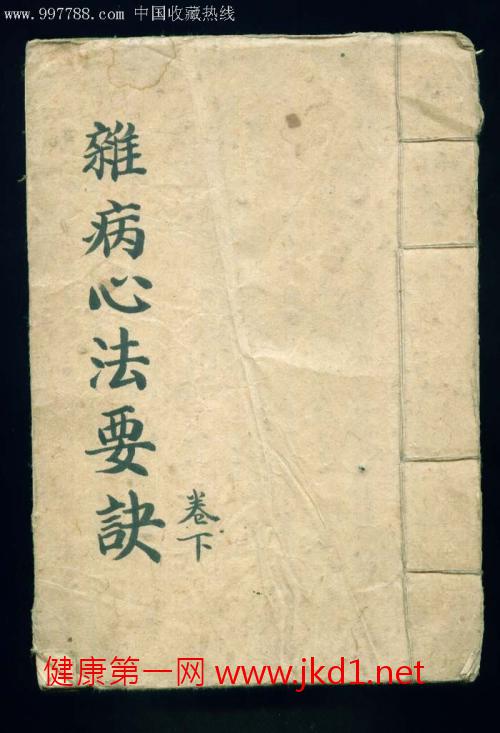 www.997788.com 中国收藏热线
雜病心法要訣
卷下
健康第一网 www.jkd1.net